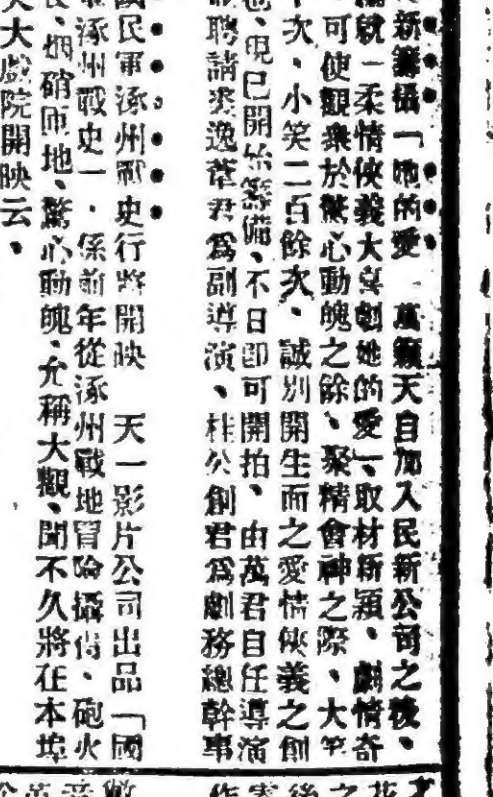 新籌攝「她的愛 萬籟天自加入民新公司之後、
就一柔情俠義大喜劇她的愛一、取材新穎、劇情奇
可使觀衆於驚心動魄之餘、聚精會神之際、大笑
次、小笑二百餘次、誠別開生面之愛情俠義之創
也、現已開始籌備、不日卽可開拍、由萬君自任導演
聘請裘逸葦君爲副導演、桂公創君爲劇務總幹事
國民軍涿州戰史行將開映 天一影片公司出品「國
涿州戰史一、係前年從涿州戰地冒險攝得、砲火
烟硝匝地、驚心動魄、允稱大觀、聞不久將在本埠
大戲院開映云、